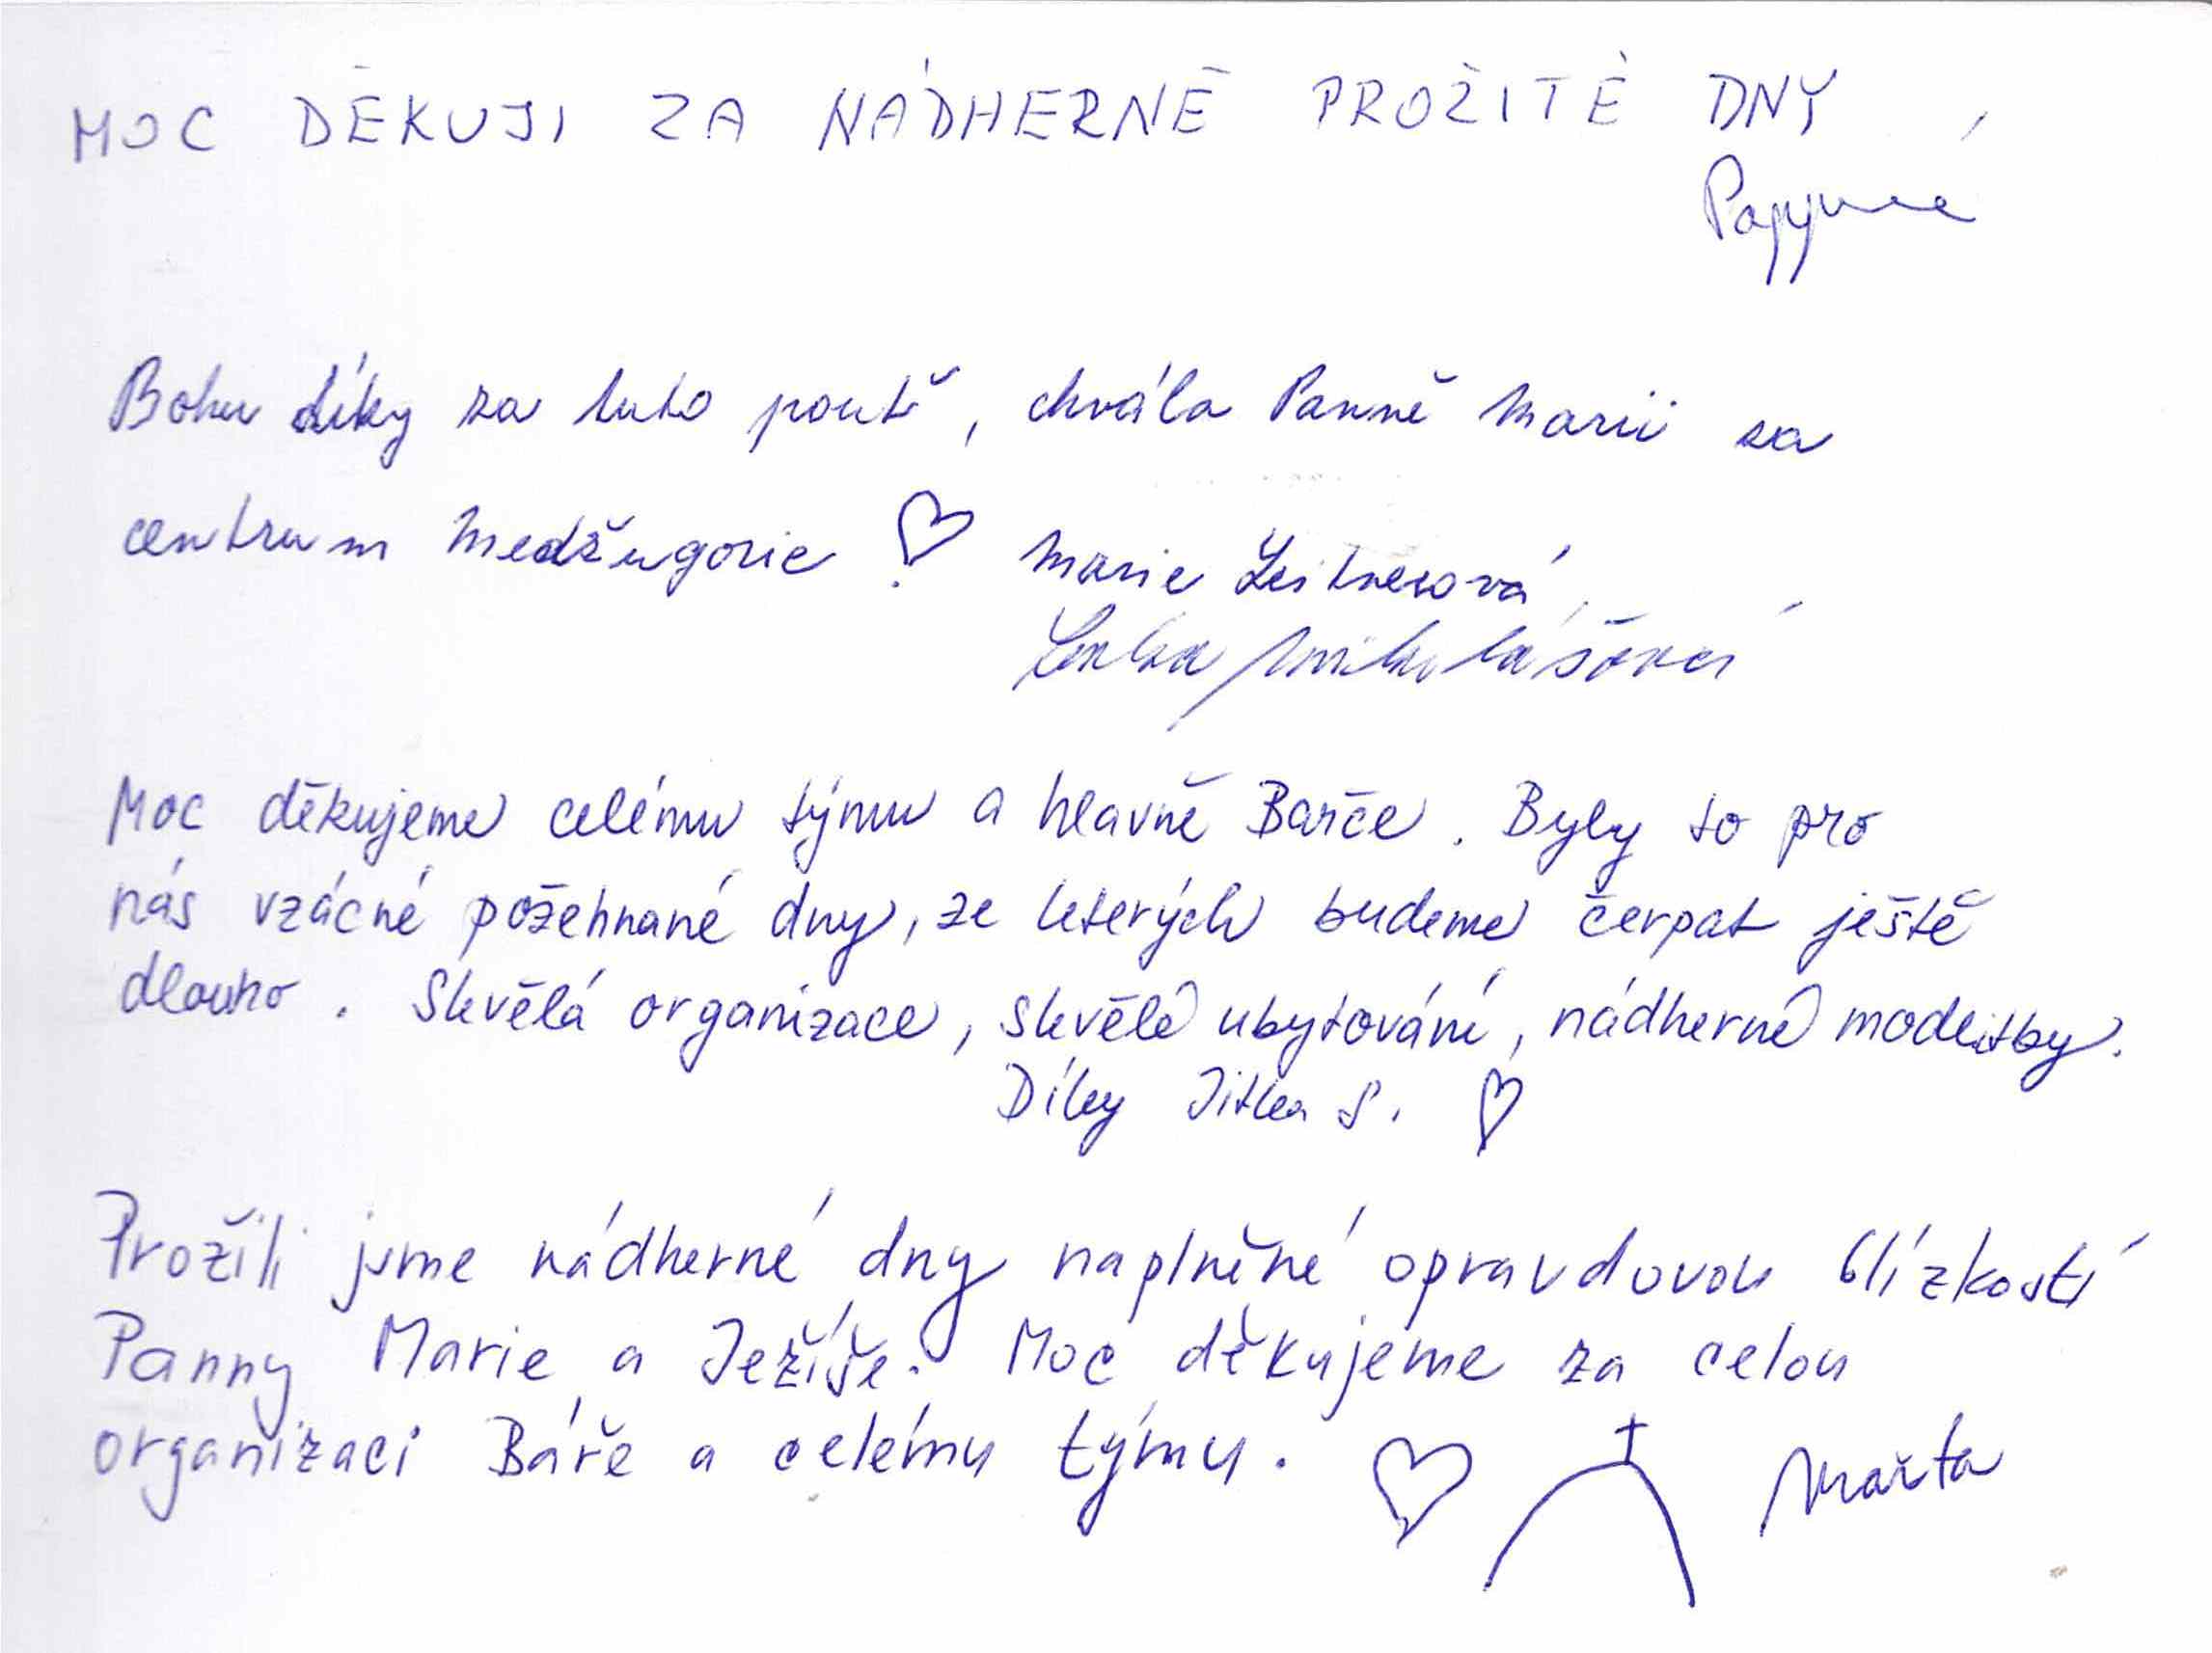 MOC DĚKUJI ZA NÁDHERNĚ PROŽITÉ DNY
Bohu díky za tuto pouť, chvála Panně Marii za
centrum Medžugorie ♡ Marie Leitnerová,
Lenka Mikulášová
Moc děkujeme celému týmu a hlavně Barče. Byly to pro
nás vzácné požehnané dny, ze kterých budeme čerpat ještě
dlouho. Skvělá organizace, skvělé ubytování, nádherné modlitby.
Díky Jitka S. ♡
Prožili jsme nádherné dny naplněné opravdovou blízkostí
Panny Marie a Ježíše. Moc děkujeme za celou
organizaci Báře a celému týmu. ♡ Marta